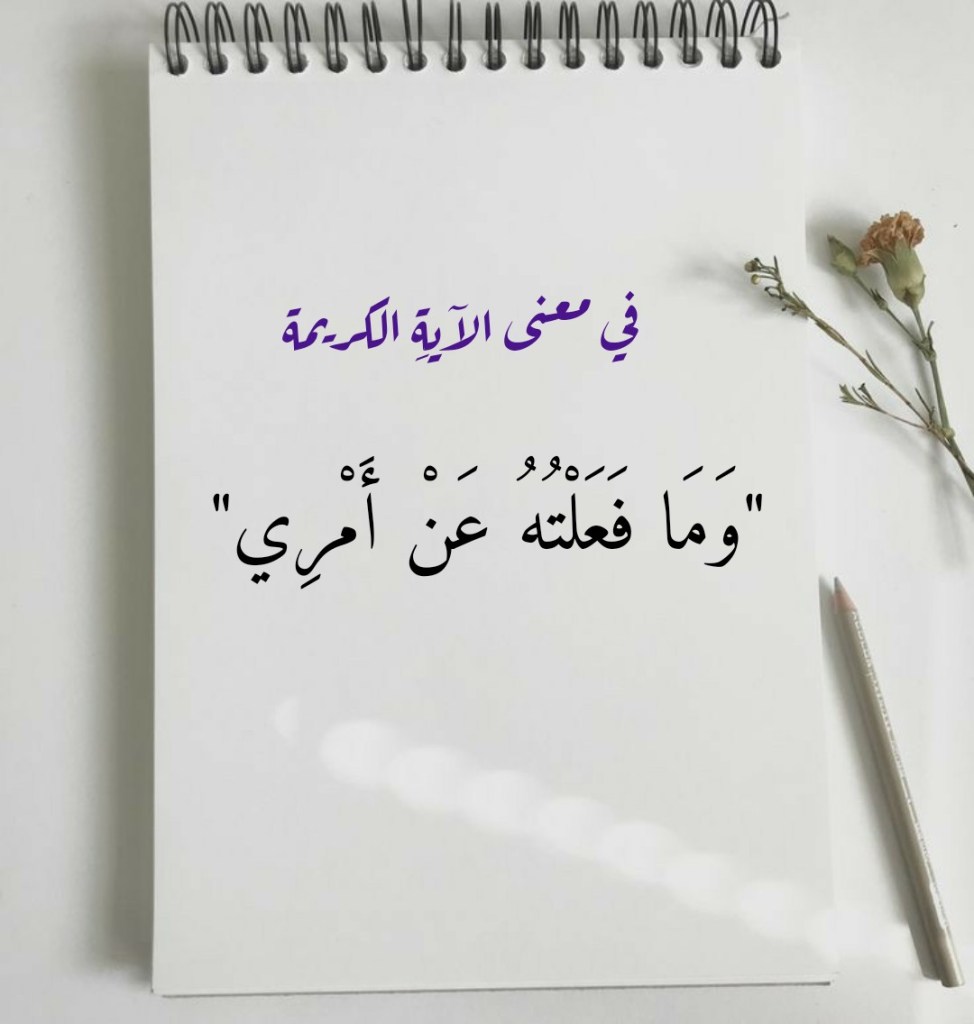 في معنى الآيةِ الكريمة
"وَمَا فَعَلْتُهُ عَنْ أَمْرِي"